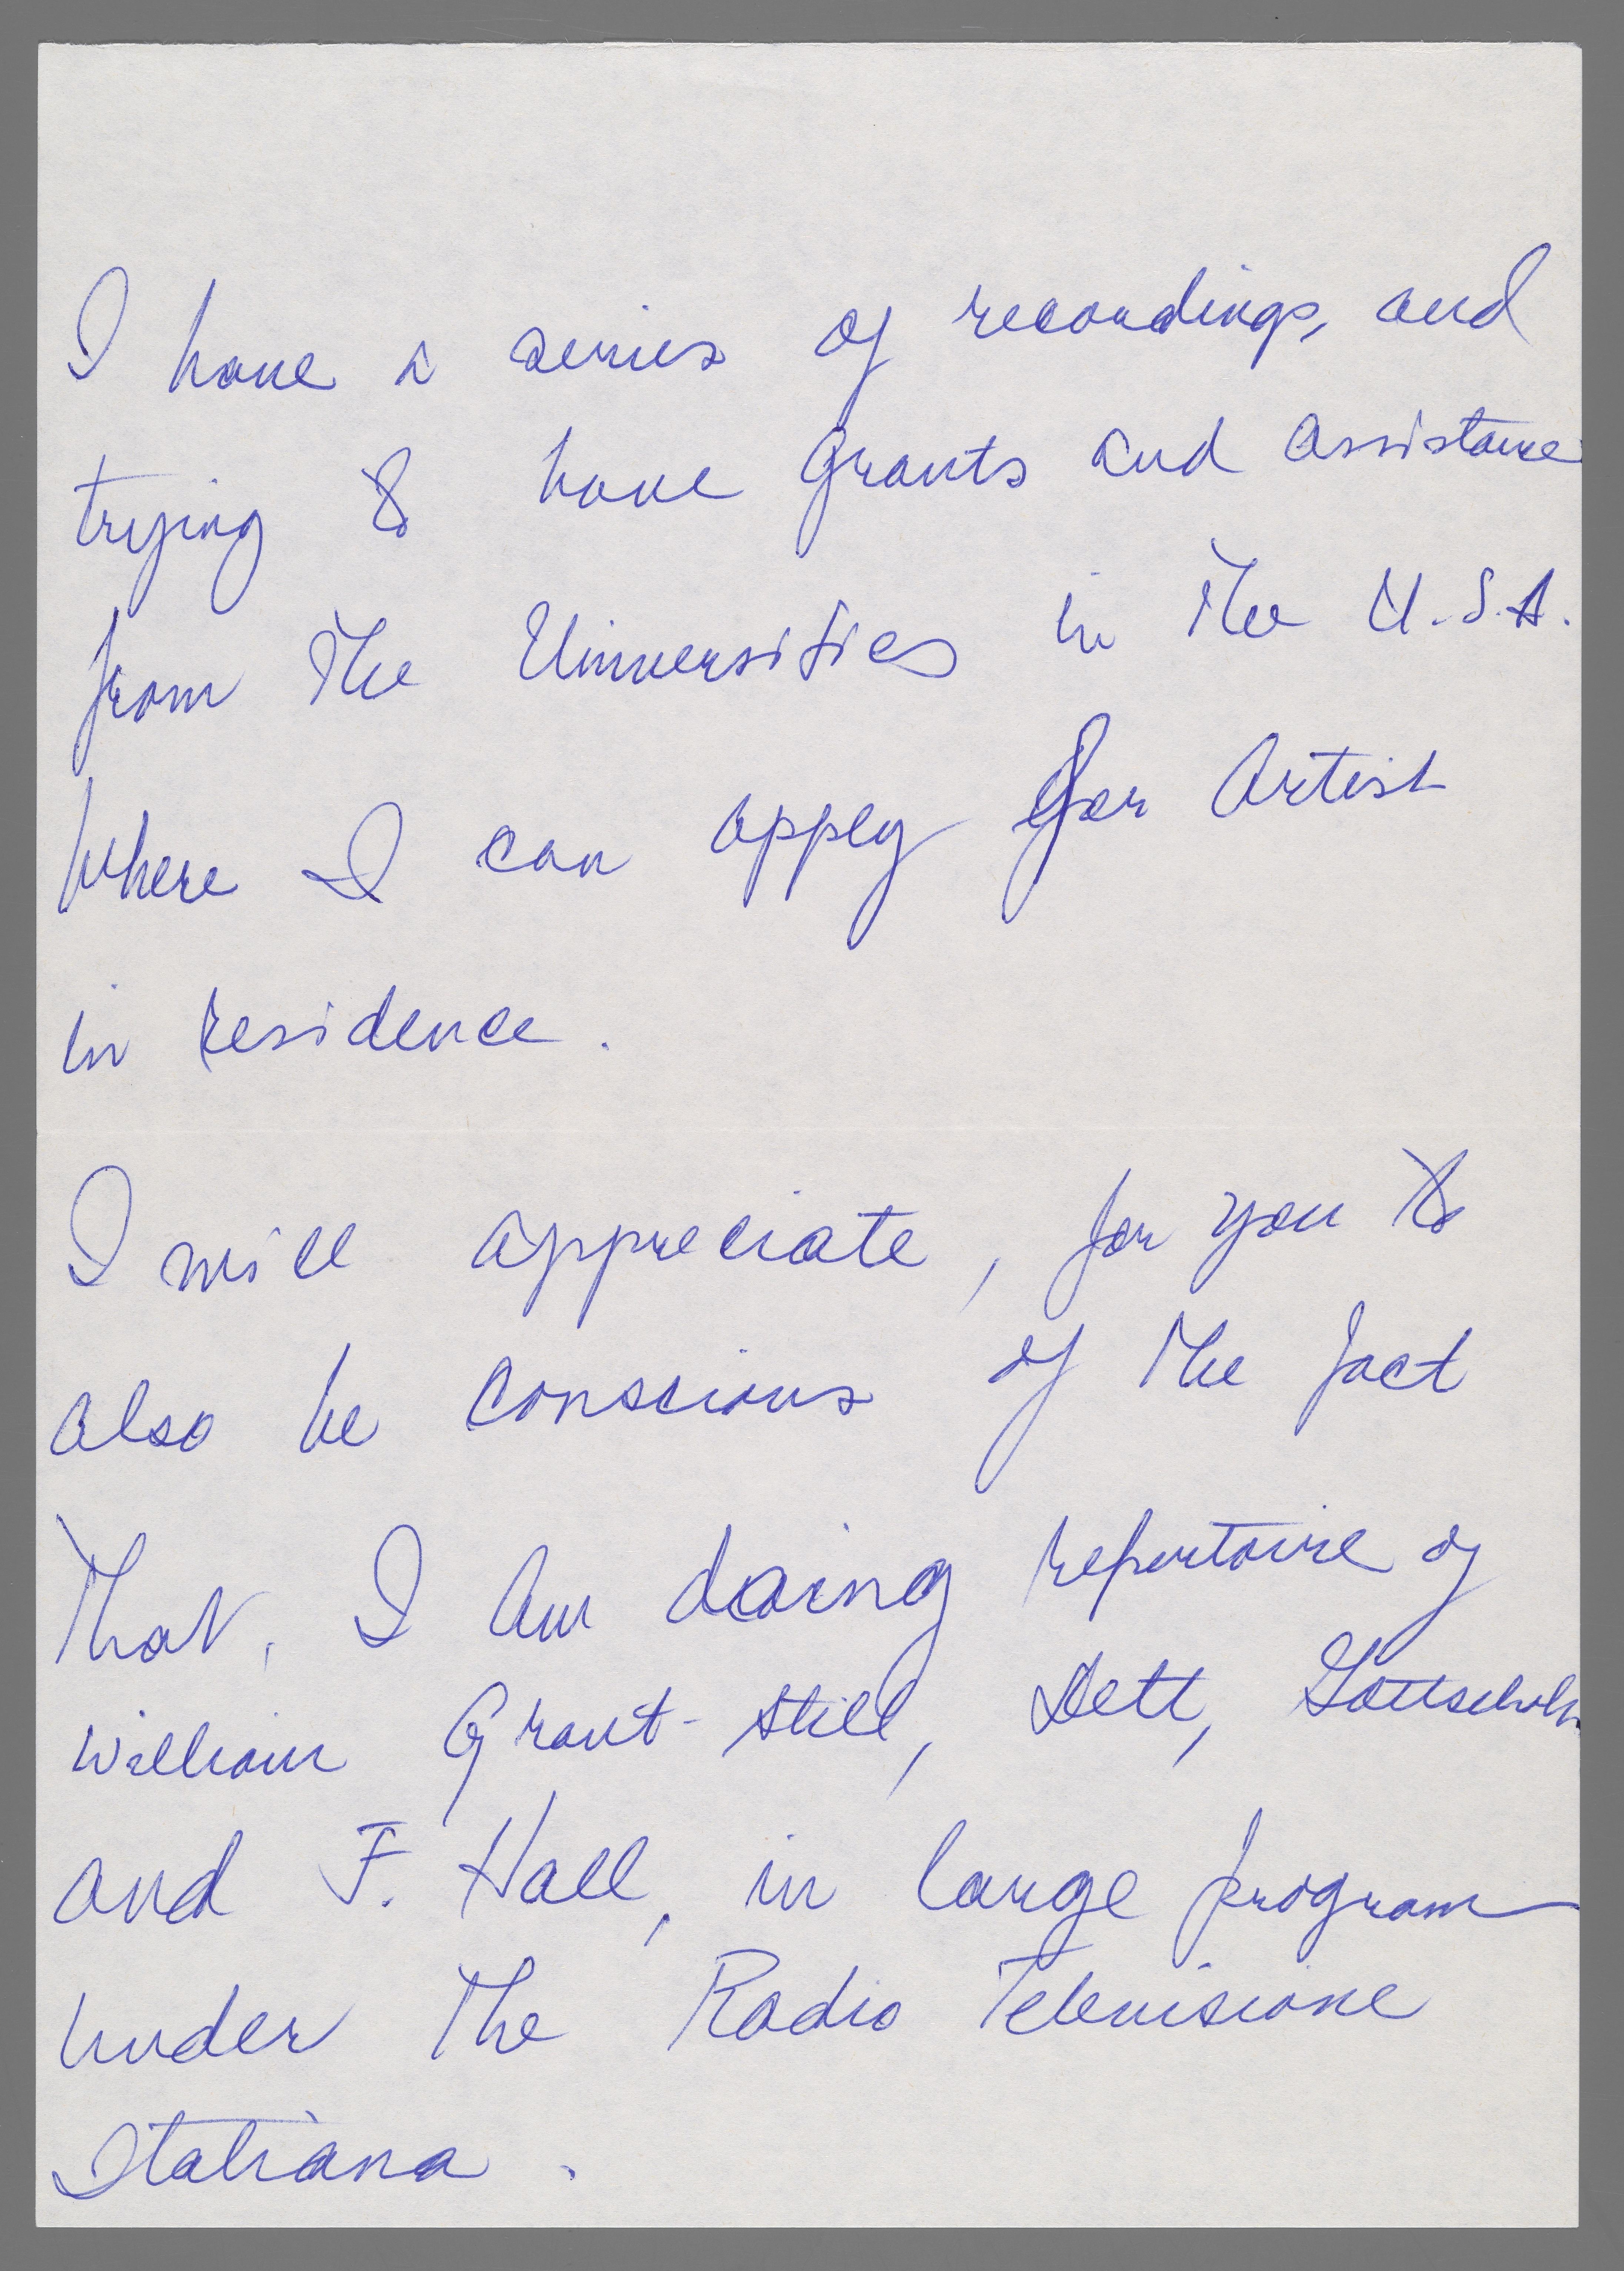 I have a series of recordings, and
trying to have grants and assistance
from the Universities in the U.S.A.
where I can apply for Artist
in residence.
I will appreciate, for you to
also be conscious of the fact
that, I am doing repertoire of
William Grant-Still, Dett, Gottschalk
and F. Hall, in large program
under the Radio Televisione
Italiana.